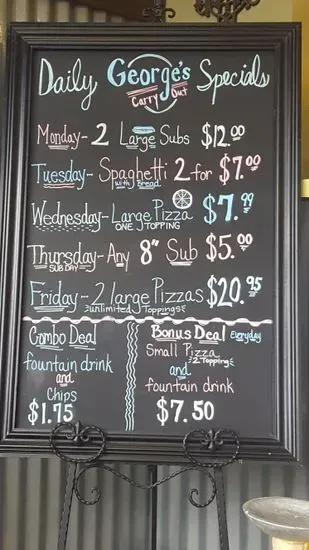 Daily George's Specials
Carry Out
Monday - 2 Large Subs $12.00
Tuesday - Spaghetti 2 for $7.00
with Bread
Wednesday - Large Pizza $7.99
ONE TOPPING
Thursday - Any 8" Sub $5.00
SUB DAY
Friday - 2 large Pizzas $20.95
unlimited Toppings
Combo Deal
fountain drink
and
Chips
$1.75
Bonus Deal Everyday
Small Pizza
2 Topping
and
fountain drink
$7.50